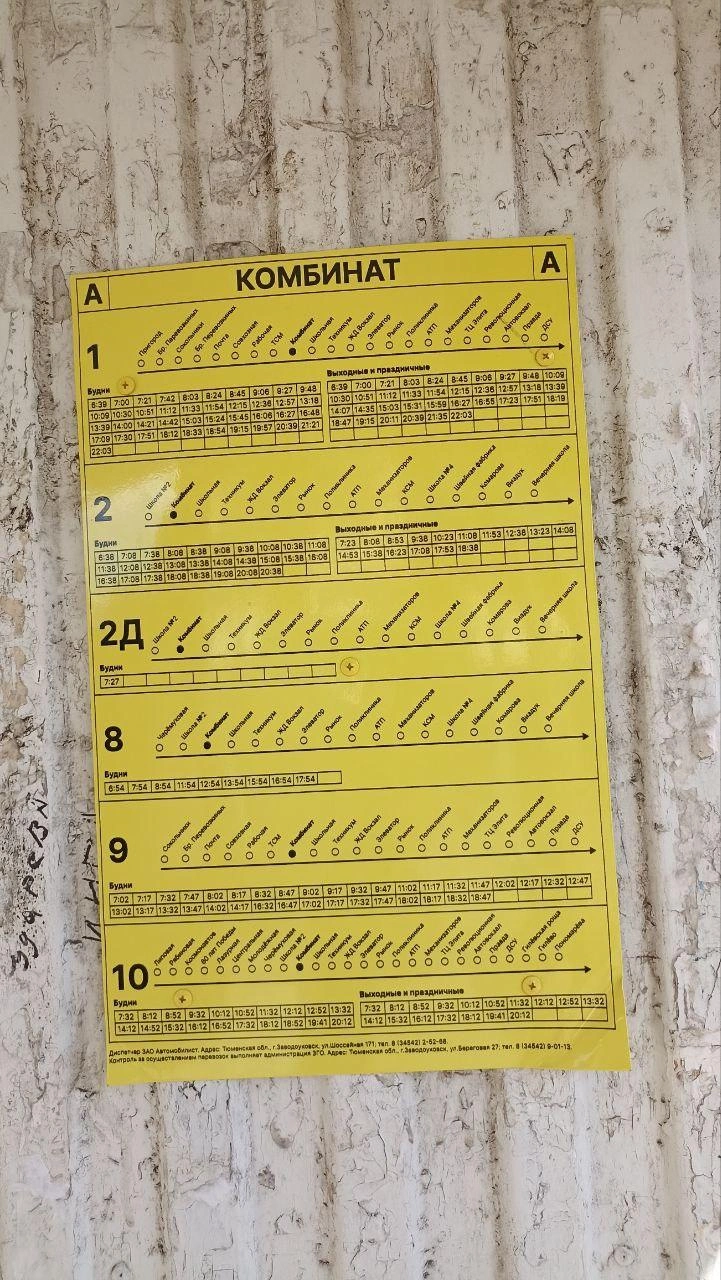 А КОМБИНАТ А
1
Пригород Бр. Перевозкиных Сокольники Бр. Перевозкиных Почта Совхозная Рабочая ТСМ Комбинат Школьная Техникум ЖД Вокзал Элеватор Рынок Поликлиника АТП Механизаторов ТЦ Элита Революционная Автовокзал Правда ДСУ
Будни
6:39 7:00 7:21 7:42 8:03 8:24 8:45 9:06 9:27 9:48
10:09 10:30 10:51 11:12 11:33 11:54 12:15 12:36 12:57 13:18
13:39 14:00 14:21 14:42 15:03 15:24 15:45 16:06 16:27 16:48
17:09 17:30 17:51 18:12 18:33 18:54 19:15 19:57 20:39 21:21
22:03
Выходные и праздничные
6:39 7:00 7:21 8:03 8:24 8:45 9:06 9:27 9:48 10:09
10:30 10:51 11:12 11:33 11:54 12:15 12:36 12:57 13:18 13:39
14:07 14:35 15:03 15:31 15:59 16:27 16:55 17:23 17:51 18:19
18:47 19:15 20:11 20:39 21:35 22:03
2
Школа №2 Комбинат Школьная Техникум ЖД Вокзал Элеватор Рынок Поликлиника АТП Механизаторов КСМ Школа №4 Швейная фабрика Комарова Виадук Вечерняя школа
Будни
6:38 7:08 7:38 8:08 8:38 9:08 9:38 10:08 10:38 11:08
11:38 12:08 12:38 13:08 13:38 14:08 14:38 15:08 15:38 16:08
16:38 17:08 17:38 18:08 18:38 19:08 20:08 20:38
Выходные и праздничные
7:23 8:08 8:53 9:38 10:23 11:08 11:53 12:38 13:23 14:08
14:53 15:38 16:23 17:08 17:53 18:38
2Д
Школа №2 Комбинат Школьная Техникум ЖД Вокзал Элеватор Рынок Поликлиника АТП Механизаторов КСМ Школа №4 Швейная фабрика Комарова Виадук Вечерняя школа
Будни
7:27
8
Черёмуховая Школа №2 Комбинат Школьная Техникум ЖД Вокзал Элеватор Рынок Поликлиника АТП Механизаторов КСМ Школа №4 Швейная фабрика Комарова Виадук Вечерняя школа
Будни
6:54 7:54 8:54 11:54 12:54 13:54 15:54 16:54 17:54
9
Сокольники Бр. Перевозкиных Почта Совхозная Рабочая ТСМ Комбинат Школьная Техникум ЖД Вокзал Элеватор Рынок Поликлиника АТП Механизаторов ТЦ Элита Революционная Автовокзал Правда ДСУ
Будни
7:02 7:17 7:32 7:47 8:02 8:17 8:32 8:47 9:02 9:17 9:32 9:47 11:02 11:17 11:32 11:47 12:02 12:17 12:32 12:47
13:02 13:17 13:32 13:47 14:02 14:17 16:32 16:47 17:02 17:17 17:32 17:47 18:02 18:17 18:32 18:47
10
Липовая Рябиновая Космонавтов 80 лет Победы Лазурная Центральная Молодёжная Черёмуховая Школа №2 Комбинат Школьная Техникум ЖД Вокзал Элеватор Рынок Поликлиника АТП Механизаторов ТЦ Элита Революционная Автовокзал Правда ДСУ Гилёвская роща Гилёво Пономарёва
Будни
7:32 8:12 8:52 9:32 10:12 10:52 11:32 12:12 12:52 13:32
14:12 14:52 15:32 16:12 16:52 17:32 18:12 18:52 19:41 20:12
Выходные и праздничные
7:32 8:12 8:52 9:32 10:12 10:52 11:32 12:12 12:52 13:32
14:12 15:32 16:12 17:32 18:12 19:41 20:12
Диспетчер ЗАО Автомобилист. Адрес: Тюменская обл., г.Заводоуковск, ул.Шоссейная 171; тел. 8 (34542) 2-52-68.
Контроль за осуществлением перевозок выполняет администрация ЗГО. Адрес: Тюменская обл., г.Заводоуковск, ул.Береговая 27; тел. 8 (34542) 9-01-13.